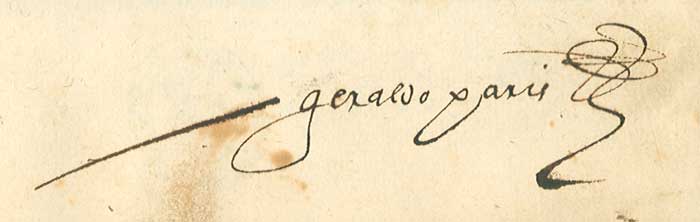 geraldo paris